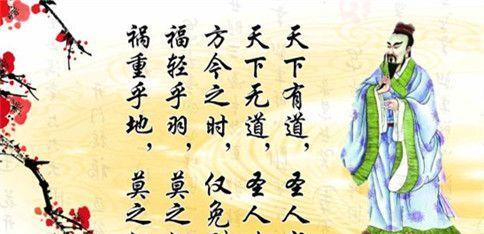 天下有道，圣人
天下无道，圣人
方今之时，仅免
福轻乎羽，莫之
祸重乎地，莫之